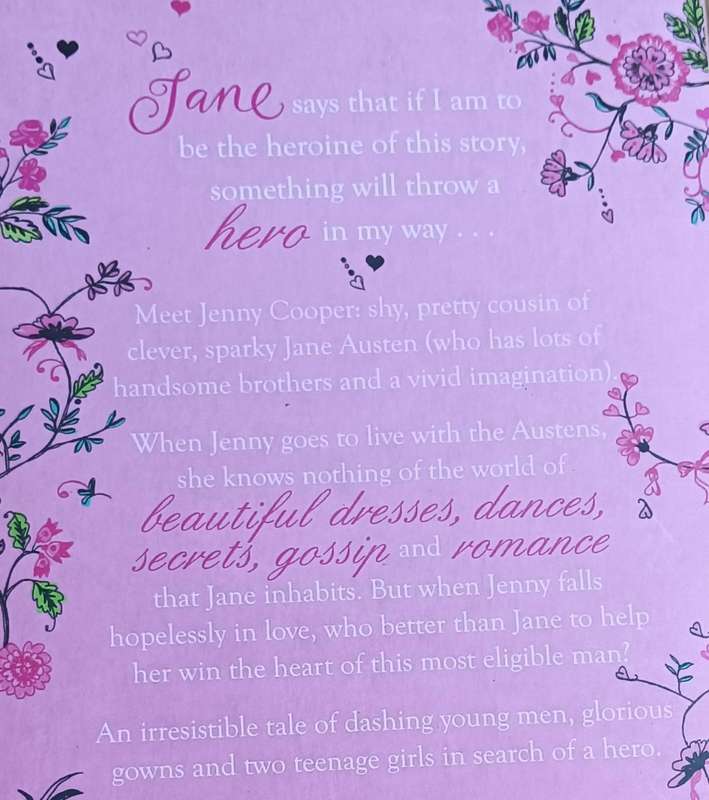 Jane says that if I am to
be the heroine of this story,
something will throw a
hero in my way . . .
Meet Jenny Cooper: shy, pretty cousin of
clever, sparky Jane Austen (who has lots of
handsome brothers and a vivid imagination).
When Jenny goes to live with the Austens,
she knows nothing of the world of
beautiful dresses, dances,
secrets, gossip and romance
that Jane inhabits. But when Jenny falls
hopelessly in love, who better than Jane to help
her win the heart of this most eligible man?
An irresistible tale of dashing young men, glorious
gowns and two teenage girls in search of a hero.